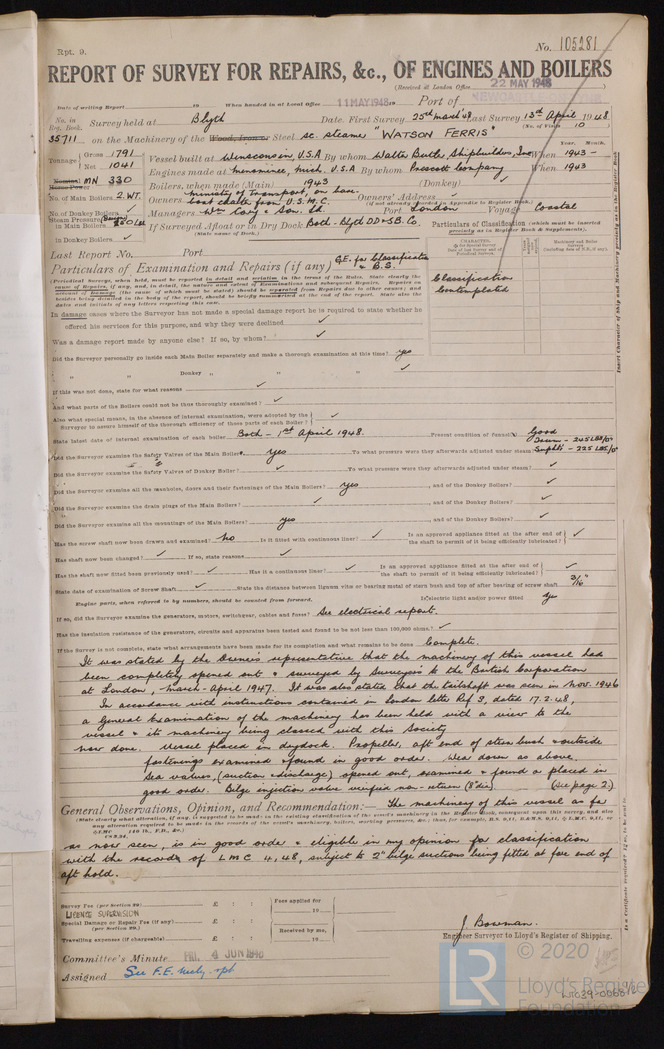 Rpt. 9.
No. 105281
REPORT OF SURVEY FOR REPAIRS, &c., OF ENGINES AND BOILERS
(Received at London Office
22 MAY 1948
Date of writing Report 19 When handed in at Local Office 11 MAY 1948 19 Port of
No. in Reg. Book. Survey held at Blyth Date. First Survey 25th March '48 Last Survey 13th April 1948
(No. of Visits 10)
35711 on the Machinery of the Wood, Iron or Steel sc. steamer "WATSON FERRIS"
Tonnage Gross 1791 Net 1041
Vessel built at Wisconsin, U.S.A By whom Walter Butler, Shipbuilders, Inc When 1943 -
Year. Month.
Engines made at Menominee, Mich. U.S.A By whom Prescott Company When 1943
Nominal Horse Power MN 330
Boilers, when made (Main) 1943 (Donkey) ✓
No. of Main Boilers 2 WT.
Owners Ministry of Transport, on bare boat charter from U.S.M.C. Owners' Address ✓
(if not already recorded in Appendix to Register Book.)
No. of Donkey Boilers ✓
Managers Wm Cory & Son Ld Port London Voyage Coastal
Steam Pressure in Main Boilers
in Donkey Boilers ✓
If Surveyed Afloat or in Dry Dock Both. Blyth DD & SB. Co.
(State name of Dock.)
Particulars of Classification (which must be inserted precisely as in Register Book & Supplements).
Last Report No. Port
Particulars of Examination and Repairs (if any) G.E. for Classification & B.S.
Classification Contemplated
In damage cases where the Surveyor has not made a special damage report he is required to state whether he
offered his services for this purpose, and why they were declined ✓
Was a damage report made by anyone else? If so, by whom? ✓
Did the Surveyor personally go inside each Main Boiler separately and make a thorough examination at this time? yes
„ „ Donkey „ „ „ ✓
If this was not done, state for what reasons ✓
And what parts of the Boilers could not be thus thoroughly examined? ✓
Also what special means, in the absence of internal examination, were adopted by the
Surveyor to assure himself of the thorough efficiency of those parts of each Boiler? ✓
State latest date of internal examination of each boiler Both - 1st April 1948. Present condition of funnel(s) Good
Did the Surveyor examine the Safety Valves of the Main Boilers yes To what pressure were they afterwards adjusted under steam? Drum - 245 LBS/□" Suphts - 225 LBS/□"
Did the Surveyor examine the Safety Valves of Donkey Boiler? ✓ To what pressure were they afterwards adjusted under steam? ✓
Did the Surveyor examine all the manholes, doors and their fastenings of the Main Boilers? yes, and of the Donkey Boilers? ✓
Did the Surveyor examine the drain plugs of the Main Boilers? ✓, and of the Donkey Boilers? ✓
Did the Surveyor examine all the mountings of the Main Boilers? yes, and of the Donkey Boilers? ✓
Has the screw shaft now been drawn and examined? No Is it fitted with continuous liner? ✓ Is an approved appliance fitted at the after end of the shaft to permit of it being efficiently lubricated? ✓
Has shaft now been changed? ✓ If so, state reasons ✓
Has the shaft now fitted been previously used? ✓ Has it a continuous liner? ✓ Is an approved appliance fitted at the after end of the shaft to permit of it being efficiently lubricated? ✓
State date of examination of Screw Shaft ✓ State the distance between lignum vitæ or bearing metal of stern bush and top of after bearing of screw shaft 3/16"
Engine parts, when referred to by numbers, should be counted from forward. Is electric light and/or power fitted Yes
If so, did the Surveyor examine the generators, motors, switchgear, cables and fuses? See electrical report.
Has the insulation resistance of the generators, circuits and apparatus been tested and found to be not less than 100,000 ohms? ✓
If the Survey is not complete, state what arrangements have been made for its completion and what remains to be done Complete.
It was stated by the Owner's representative that the machinery of this vessel had
been completely opened out & surveyed by Surveyors to the British Corporation
at London, March - April 1947. It was also stated that the tailshaft was seen in Nov. 1946
In accordance with instructions contained in London letter Ref 3, dated 17.2.48,
a General Examination of the machinery has been held with a view to the
vessel & its machinery being classed with this Society
Now done. Vessel placed in drydock. Propeller, aft end of stern bush & outside
fastenings examined & found in good order. Wear down as above.
Sea valves, (suction & discharge) opened out, examined & found or placed in
good order. Bilge injection valve verified non-return (8" dia). (see page 2.)
General Observations, Opinion, and Recommendation:— The machinery of this vessel as far
as now seen, is in good order & eligible in my opinion for classification
with the record of LMC 4,48, subject to 2" bilge suctions being fitted at fore end of
aft hold.
Survey Fee (per Section 29) £ : :
LICENCE SUPERVISION
Special Damage or Repair Fee (if any) £ : :
(per Section 29.)
Travelling expenses (if chargeable) £ : :
Fees applied for
19
Received by me,
19
J. Bowman.
Engineer Surveyor to Lloyd's Register of Shipping.
Committee's Minute FRI. 4 JUN 1948
Assigned See F.E. Mchy. rpt
© 2020
LR
Lloyd's Register Foundation